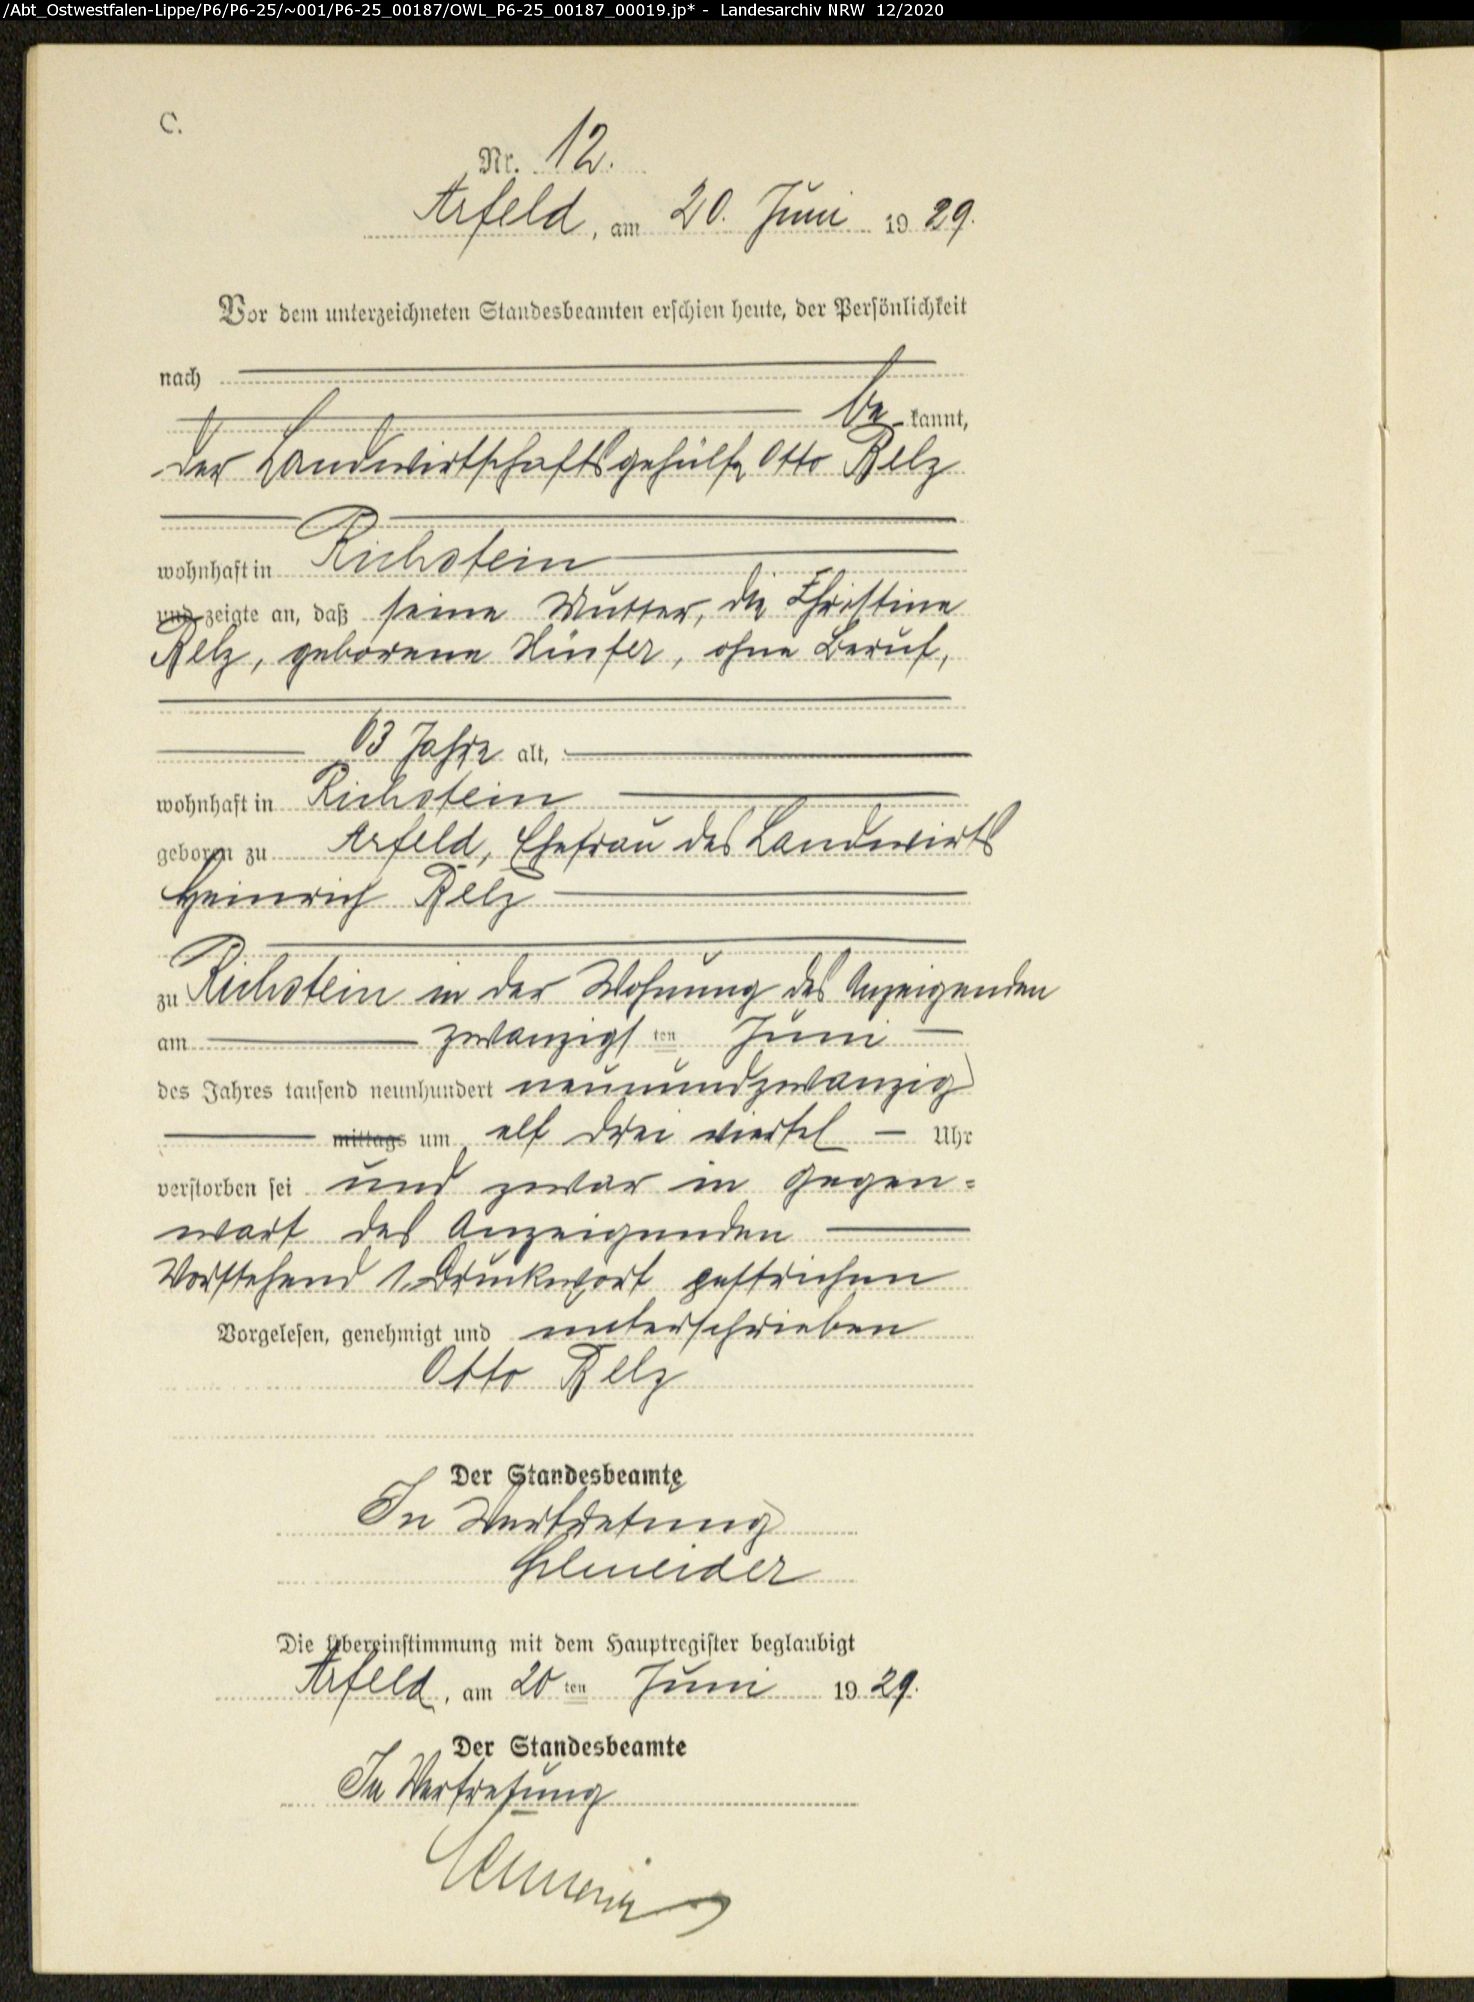 /Abt_Ostwestfalen-Lippe/P6/P6-25/~001/P6-25_00187/OWL_P6-25_00187_00019.jp* - Landesarchiv NRW 12/2020
C.
Nr. 12.
Arfeld, am 20. Juni 1929.
Vor dem unterzeichneten Standesbeamten erschien heute, der Persönlichkeit
nach
be kannt,
der Landwirtschaftsgehülfe Otto Belz
wohnhaft in Richstein
und zeigte an, daß seine Mutter, die Christine
Belz, geborene, ohne Beruf,
63 Jahre alt,
wohnhaft in Richstein
geboren zu Arfeld, Ehefrau des Landwirts
Heinrich Belz
zu Richstein in der Wohnung des Anzeigenden
am zwanzigsten Juni
des Jahres tausend neunhundert neunundzwanzig
mittags um elf drei viertel Uhr
verstorben sei und zwar in Gegen=
wart des Anzeigenden
Vorstehend 1 Druckwort gestrichen
Vorgelesen, genehmigt und unterschrieben
Otto Belz
Der Standesbeamte
In Vertretung
Schneider
Die Übereinstimmung mit dem Hauptregister beglaubigt
Arfeld, am 20ten Juni 1929.
Der Standesbeamte
In Vertretung